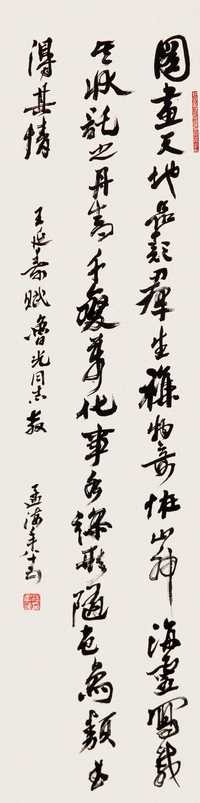 圖畫天地品類羣生雜物奇怪山神海靈寫載
其狀託之丹青千變萬化事各繆形隨色象類曲
得其情 王延壽賦 魯光同志教
孟海年八十